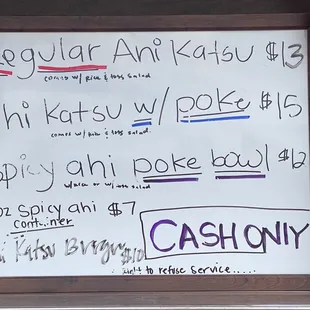 egular Ani Katsu $13
comes w/ rice & toss salad
hi Katsu w/ poke $15
comes w/ rice & toss salad.
picy ahi poke bowl $12
oz spicy ahi $7
container
CASH ONlY
Katsu $10
to refuse service.....